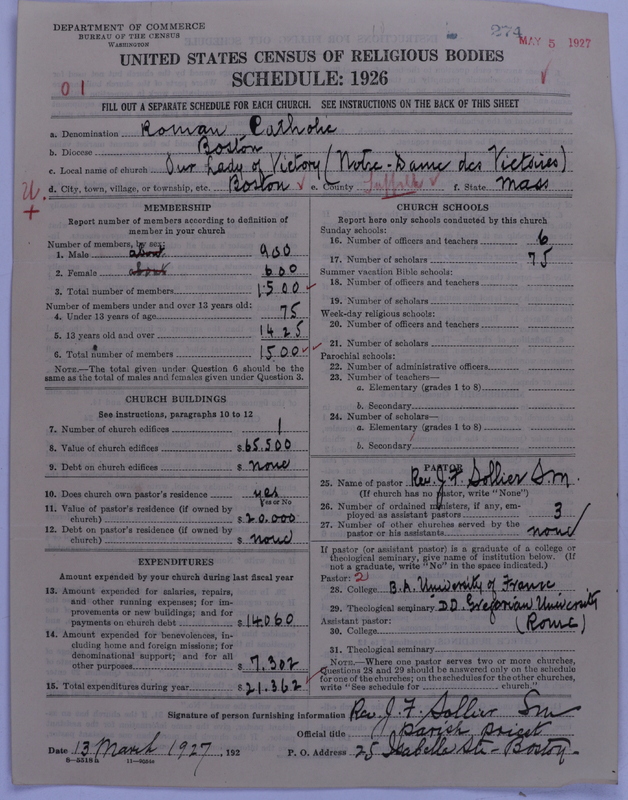 DEPARTMENT OF COMMERCE
BUREAU OF THE CENSUS
WASHINGTON
274
MAY 5 1927
UNITED STATES CENSUS OF RELIGIOUS BODIES
SCHEDULE: 1926
01
FILL OUT A SEPARATE SCHEDULE FOR EACH CHURCH. SEE INSTRUCTIONS ON THE BACK OF THIS SHEET
a. Denomination Roman Catholic
b. Diocese Boston
c. Local name of church Our Lady of Victory (Notre-Dame des Victoires)
d. City, town, village, or township, etc. Boston e. County Suffolk f. State Mass
U.
+
MEMBERSHIP
Report number of members according to definition of
member in your church
Number of members, by sex:
1. Male about 900
2. Female about 600
3. Total number of members 1500
Number of members under and over 13 years old:
4. Under 13 years of age 75
5. 13 years old and over 1425
6. Total number of members 1500
NOTE.—The total given under Question 6 should be the
same as the total of males and females given under Question 3.
CHURCH BUILDINGS
See instructions, paragraphs 10 to 12
7. Number of church edifices 1
8. Value of church edifices $65.500
9. Debt on church edifices $ none
10. Does church own pastor's residence yes
Yes or No
11. Value of pastor's residence (if owned by
church) $20.000
12. Debt on pastor's residence (if owned by
church) $ none
EXPENDITURES
Amount expended by your church during last fiscal year
13. Amount expended for salaries, repairs,
and other running expenses; for im-
provements or new buildings; and for
payments on church debt $14060
14. Amount expended for benevolences, in-
cluding home and foreign missions; for
denominational support; and for all
other purposes $7.302
15. Total expenditures during year $21.362
CHURCH SCHOOLS
Report here only schools conducted by this church
Sunday schools:
16. Number of officers and teachers 6
17. Number of scholars 75
Summer vacation Bible schools:
18. Number of officers and teachers
19. Number of scholars
Week-day religious schools:
20. Number of officers and teachers
21. Number of scholars
Parochial schools:
22. Number of administrative officers
23. Number of teachers—
a. Elementary (grades 1 to 8)
b. Secondary
24. Number of scholars—
a. Elementary (grades 1 to 8)
b. Secondary
PASTOR
25. Name of pastor Rev. J. F. Sollier S.M.
(If church has no pastor, write "None")
26. Number of ordained ministers, if any, em-
ployed as assistant pastors 3
27. Number of other churches served by the
pastor or his assistants none
If pastor (or assistant pastor) is a graduate of a college or
theological seminary, give name of institution below. (If
not a graduate, write "No" in the space indicated.)
Pastor: 2
28. College B.A. University of France
29. Theological seminary D.D. Gregorian University
Assistant pastor: (Rome)
30. College
31. Theological seminary
NOTE.—Where one pastor serves two or more churches,
Questions 28 and 29 should be answered only on the schedule
for one of the churches; on the schedules for the other churches,
write "See schedule for church."
Signature of person furnishing information Rev. J. F. Sollier Sm
Official title Parish priest
Date 13 March 1927, 192 P. O. Address 25 Isabella St - Boston.
8—5318 a 11—9264